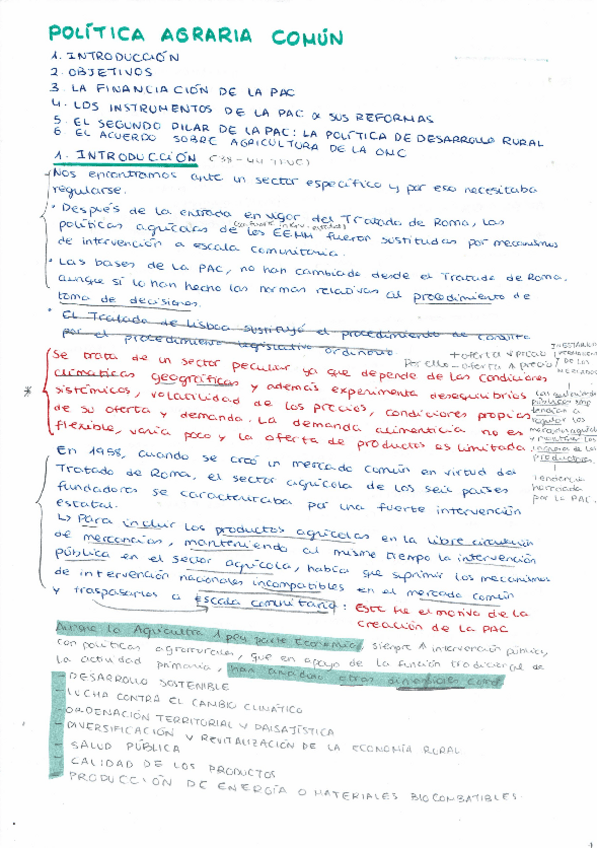 POLÍTICA AGRARIA COMÚN
1. INTRODUCCIÓN
2. OBJETIVOS
3. LA FINANCIACIÓN DE LA PAC
4. LOS INSTRUMENTOS DE LA PAC & SUS REFORMAS
5. EL SEGUNDO PILAR DE LA PAC: LA POLÍTICA DE DESARROLLO RURAL
6 EL ACUERDO SOBRE AGRICULTURA DE LA OMC
1. INTRODUCCIÓN (38-44 TFUE)
Nos encontramos ante un sector específico y por eso necesitaba
regularse.
• Después de la entrada en vigor del Tratado de Roma, las
políticas agrícolas de los EEMM fueron sustituidas por mecanismos
de intervención a escala comunitaria.
• Las bases de la PAC, no han cambiado desde el Tratado de Roma,
aunque sí lo han hecho las normas relativas al procedimiento de
toma de decisiones.
• El Tratado de Lisboa sustituyó el procedimiento de consulta
por el procedimiento legislativo ordinario
Por ello
+ oferta ↓ precio
- oferta ↑ precio
Se trata de un sector peculiar ya que depende de las condiciones
climáticas geográficas y además experimenta desequilibrios
* sistémicos, volatilidad de los precios, condiciones propias
de su oferta y demanda. La demanda alimenticia no es
flexible, varía poco y la oferta de productos es limitada
de los
tendían a
regular los
y mantener los
productores.
Tendencia
heredada
por la PAC.
En 1958, cuando se creó un mercado común en virtud del
Tratado de Roma, el sector agrícola de los seis países
fundadores se caracterizaba por una fuerte intervención
estatal.
↳ Para incluir los productos agrícolas en la libre circulación
de mercancías, manteniendo al mismo tiempo la intervención
pública en el sector agrícola, había que suprimir los mecanismos
de intervención nacionales incompatibles en el mercado común
y traspasarlos a escala comunitaria: Este fue el motivo de la
creación de la PAC
Aunque la Agricultura peq parte Economía, siempre ↑ intervención pública,
con políticas agrorurales, que en apoyo de la función tradicional de
la actividad primaria, han añadido otras dimensiones como
- DESARROLLO SOSTENIBLE
- LUCHA CONTRA EL CAMBIO CLIMÁTICO
- ORDENACIÓN TERRITORIAL Y PAISAJÍSTICA
- DIVERSIFICACIÓN Y REVITALIZACIÓN DE LA ECONOMÍA RURAL
- SALUD PÚBLICA
- CALIDAD DE LOS PRODUCTOS
- PRODUCCIÓN DE ENERGÍA O MATERIALES BIOCOMBATIBLES